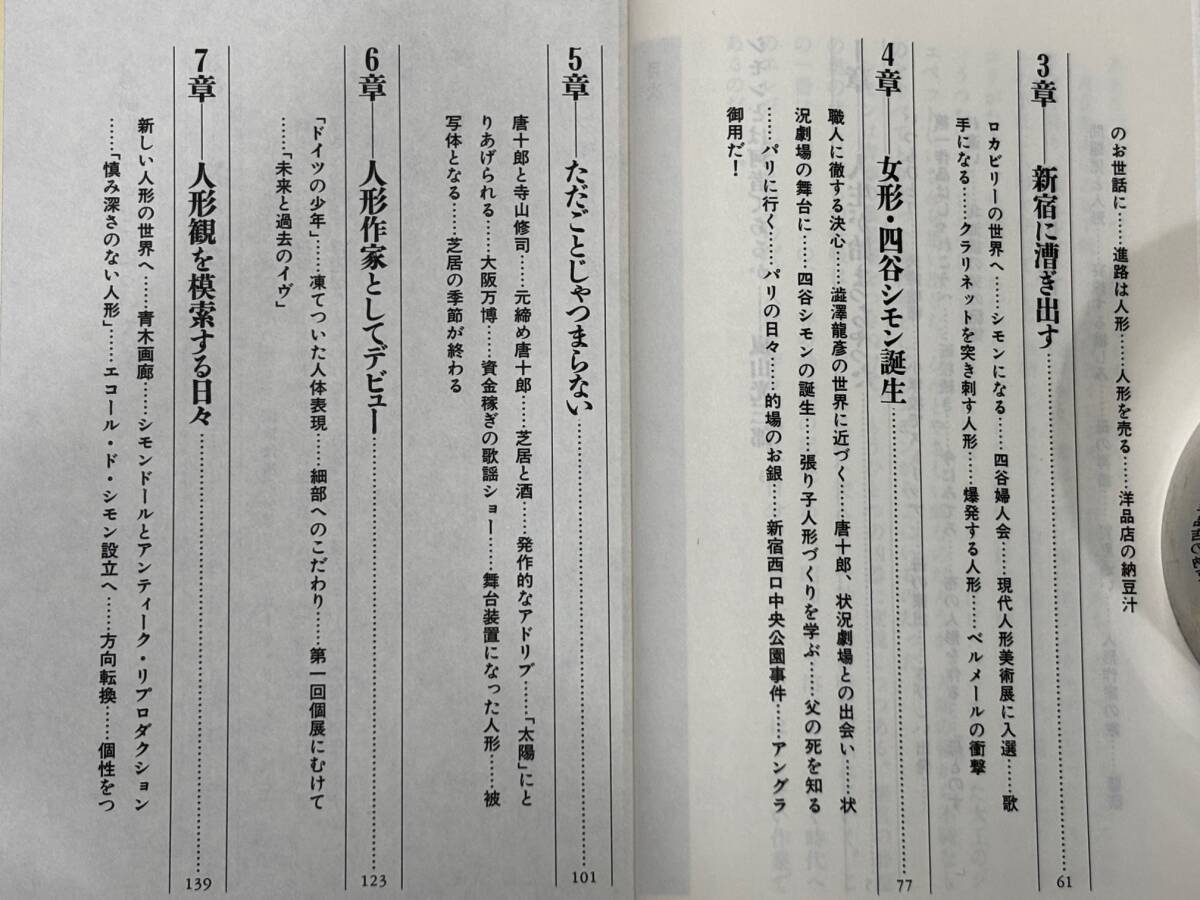 のお世話に……進路は人形……人形を売る……洋品店の納豆汁
3章――新宿に漕ぎ出す……61
ロカビリーの世界へ……シモンになる……四谷婦人会……現代人形美術展に入選……歌
手になる……クラリネットを突き刺す人形……爆発する人形……ベルメールの衝撃
4章――女形・四谷シモン誕生……77
職人に徹する決心……澁澤龍彦の世界に近づく……唐十郎、状況劇場との出会い……状
況劇場の舞台に……四谷シモンの誕生……張り子人形づくりを学ぶ……父の死を知る
……パリに行く……パリの日々……的場のお銀……新宿西口中央公園事件……アングラ
御用だ！
5章――ただごとじゃつまらない……101
唐十郎と寺山修司……元締め唐十郎……芝居と酒……発作的なアドリブ……「太陽」にと
りあげられる……大阪万博……資金稼ぎの歌謡ショー……舞台装置になった人形……被
写体となる……芝居の季節が終わる
6章――人形作家としてデビュー……123
「ドイツの少年」……凍てついた人体表現……細部へのこだわり……第一回個展にむけて
……「未来と過去のイヴ」
7章――人形観を模索する日々……139
新しい人形の世界へ……青木画廊……シモンドールとアンティーク・リプロダクション
……「慎み深さのない人形」……エコール・ド・シモン設立へ……方向転換……個性をつ